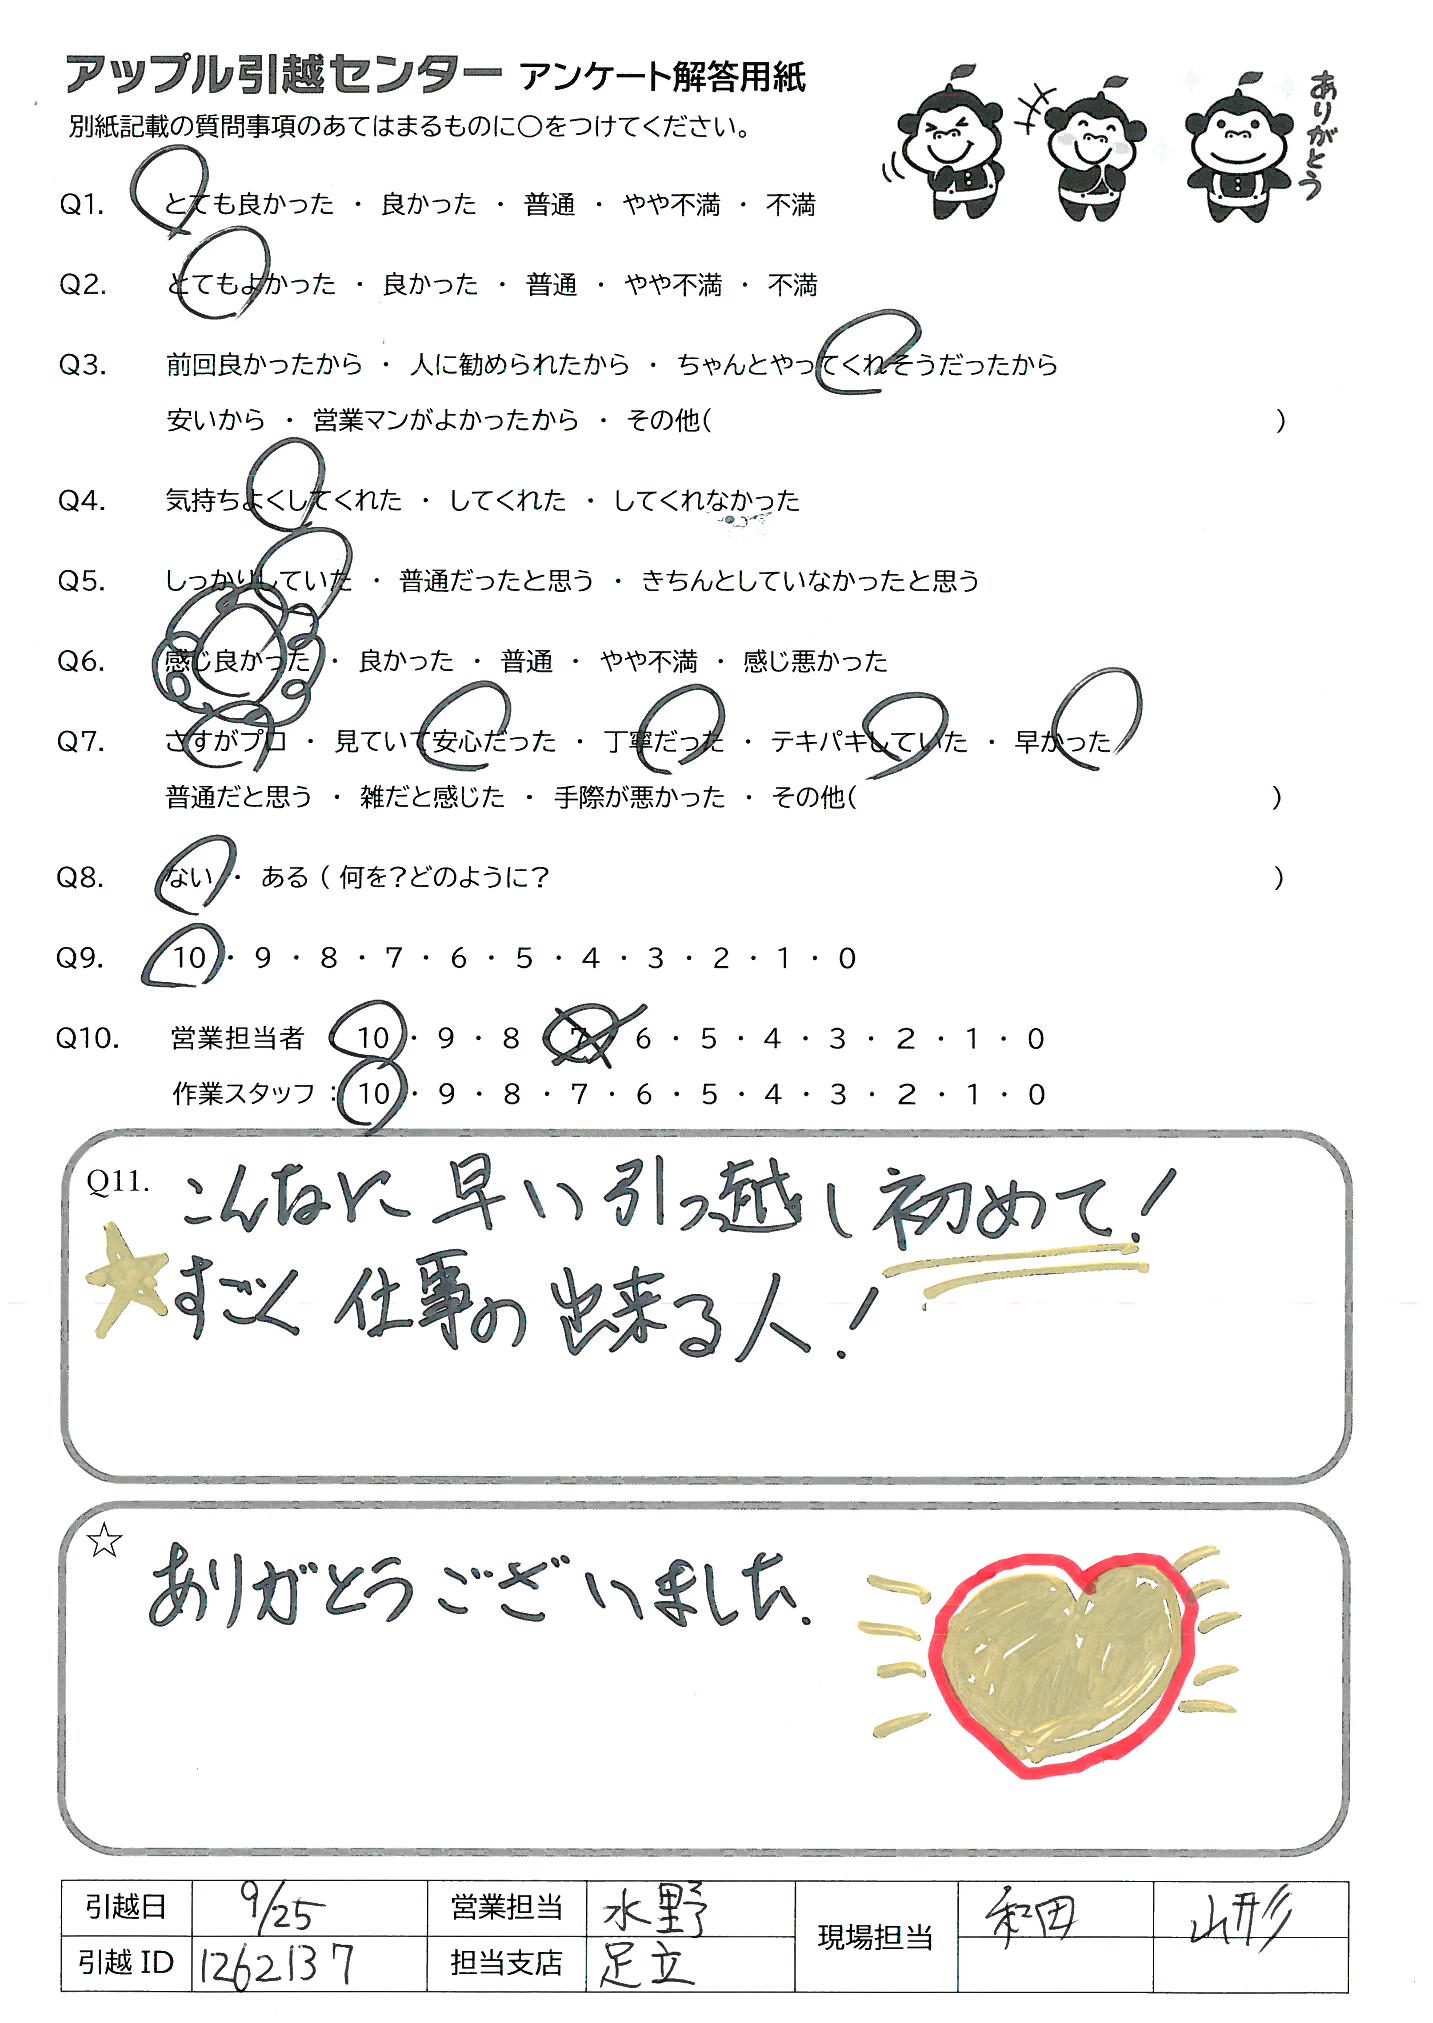 アップル引越センター アンケート解答用紙
別紙記載の質問事項のあてはまるものに○をつけてください。
ありがとう
Q1. とても良かった ・ 良かった ・ 普通 ・ やや不満 ・ 不満
Q2. とてもよかった ・ 良かった ・ 普通 ・ やや不満 ・ 不満
Q3. 前回良かったから ・ 人に勧められたから ・ ちゃんとやってくれそうだったから
安いから ・ 営業マンがよかったから ・ その他( )
Q4. 気持ちよくしてくれた ・ してくれた ・ してくれなかった
Q5. しっかりしていた ・ 普通だったと思う ・ きちんとしていなかったと思う
Q6. 感じ良かった ・ 良かった ・ 普通 ・ やや不満 ・ 感じ悪かった
Q7. さすがプロ ・ 見ていて安心だった ・ 丁寧だった ・ テキパキしていた ・ 早かった
普通だと思う ・ 雑だと感じた ・ 手際が悪かった ・ その他( )
Q8. ない ・ ある ( 何を?どのように? )
Q9. 10 ・ 9 ・ 8 ・ 7 ・ 6 ・ 5 ・ 4 ・ 3 ・ 2 ・ 1 ・ 0
Q10. 営業担当者 10 ・ 9 ・ 8 ・ 7 ・ 6 ・ 5 ・ 4 ・ 3 ・ 2 ・ 1 ・ 0
作業スタッフ : 10 ・ 9 ・ 8 ・ 7 ・ 6 ・ 5 ・ 4 ・ 3 ・ 2 ・ 1 ・ 0
Q11. こんなに早い引っ越し初めて!
すごく仕事の出来る人!
☆ ありがとうございました.
引越日 9/25 営業担当 水野 現場担当 和田 山形
引越ID 1262137 担当支店 足立